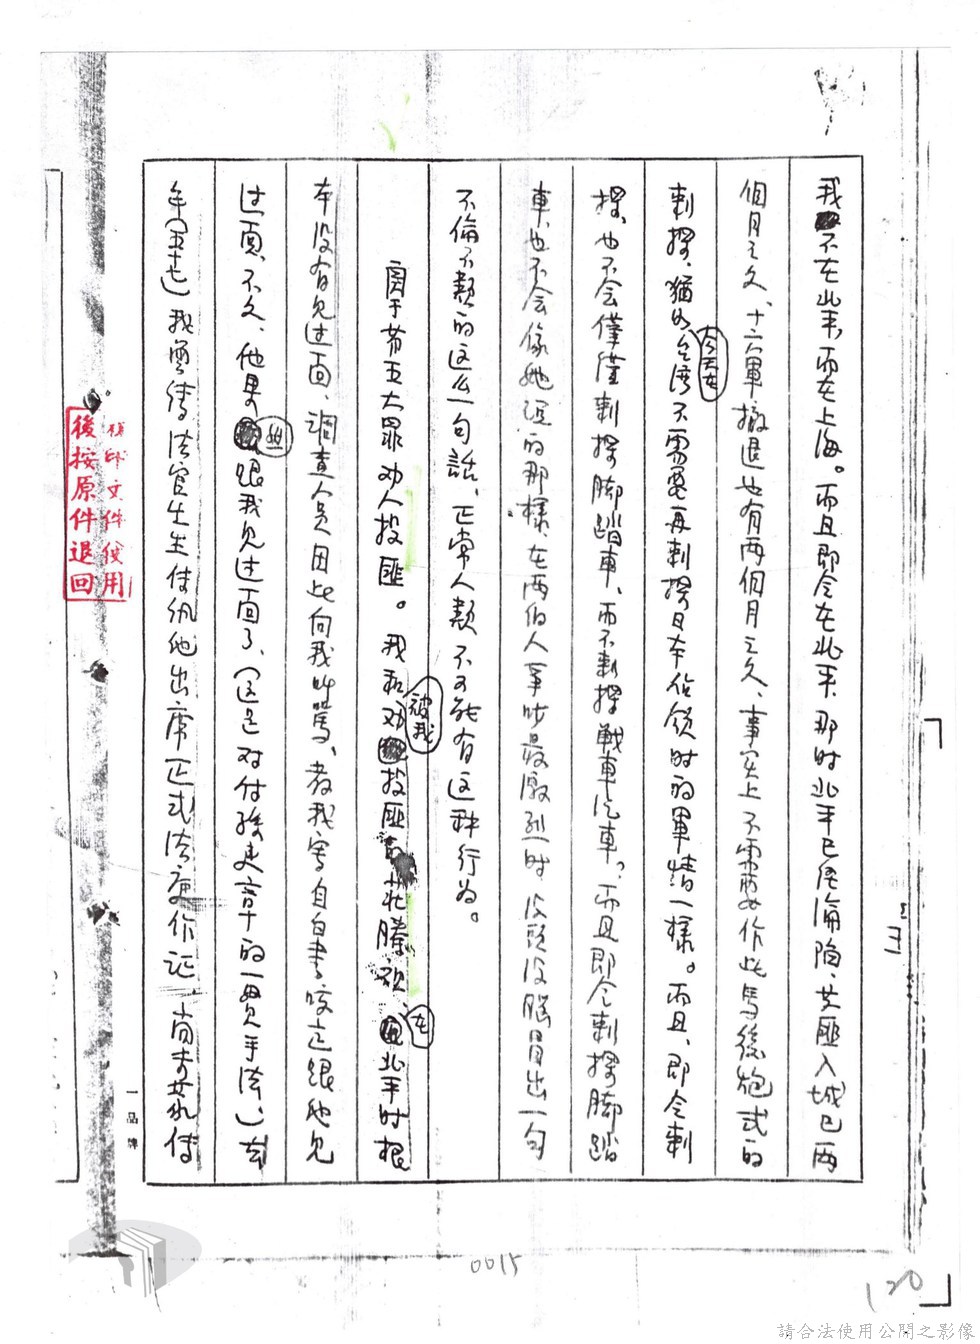 我不在北平，而在上海。而且即令在北平，那时北平已经淪陷、共匪入城已两
個月之久、十六軍撤退也有两個月之久、事实上不需要作此馬後炮式的
刺探、猶如今天在台湾不需要再刺探日本佔領时的軍情一樣。而且，即令刺
探、也不会僅僅刺探脚踏車、而不刺探戰車汽車。而且即令刺探脚踏
車、也不会像她说的那様、在两伯人爭吵最激烈时、没頭没腦冒出一句
不倫不類的这么一句話、正常人類不可能有这种行为。
関于第五大罪劝人投匪。我和被我劝投匪的莊勝欢在北平时根
本没有见过面、調查人員因此向我叫駡、教我寫自白書咬定跟他见
过面、不久、他果然跟我见过面了、(这是对付孫吏章的一貫手法、)去
年(五七)我要請法官先生传讯他出席正式法庭作证、尚未获传
複印文件使用
後按原件退回
一品牌
0015
120
請合法使用公開之影像